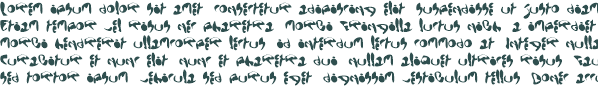 Lorem ipsum dolor sit amet consectetur adipiscing elit Suspendisse ut justo diam
Etiam tempor vel risus nec pharetra Morbi fringilla luctus nibh a imperdiet
Morbi hendrerit ullamcorper lectus id interdum lectus commodo at Integer
Curabitur et nunc elit Nunc et pharetra dui Nullam aliquet ultrices risus
Sed tortor ipsum vehicula sed purus eget dignissim vestibulum tellus Donec